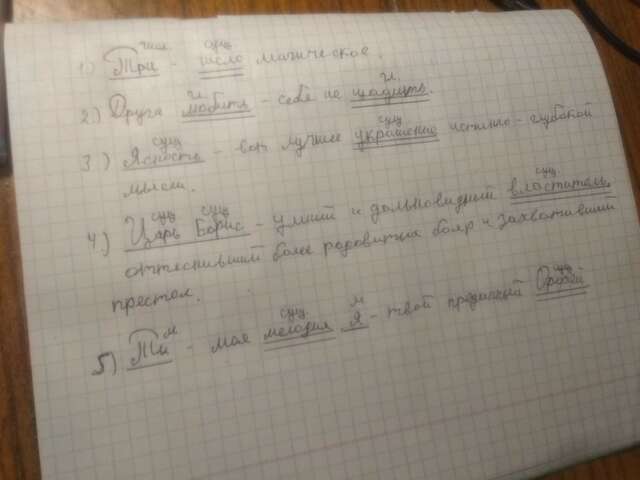 числ. сущ
1) Три - число магическое.
г. г.
2) Друга любить - себе не щадить.
сущ сущ
3) Ясность - вот лучшее украшение истинно - глубокой
мысли.
сущ сущ сущ.
4) Царь Борис - умный и дальновидный властитель,
оттеснивший более родовитых бояр и захвативший
престол.
м сущ. м сущ
5) Ты - моя мелодия Я - твой преданный Орфей